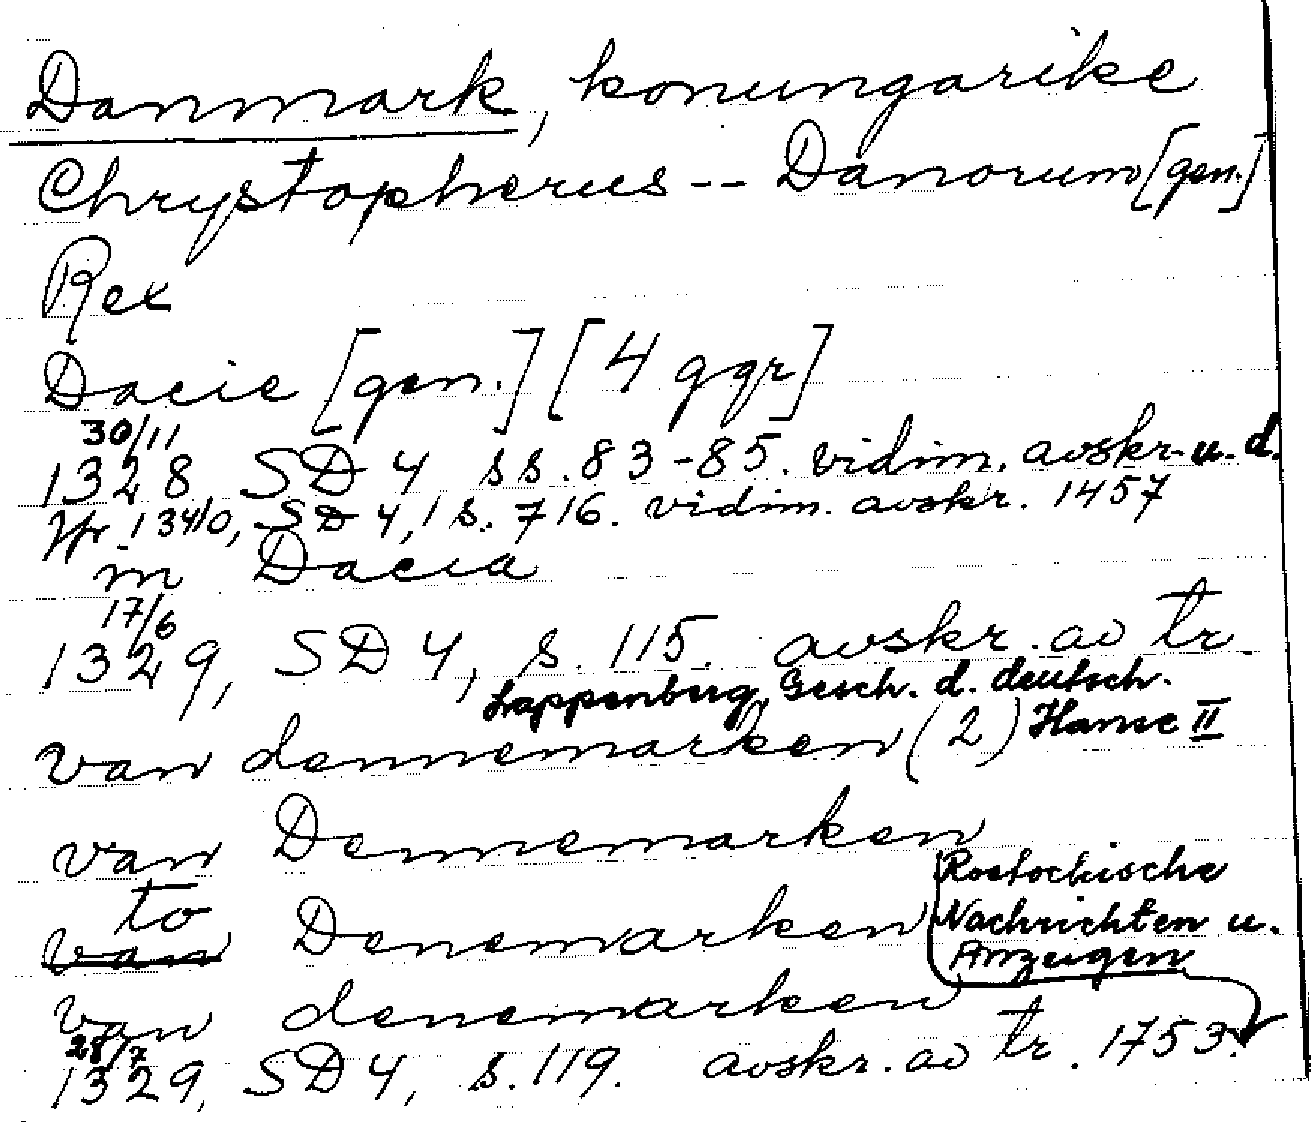 Danmark, konungarike
Chrystopherus -- Danorum [gen.]
Rex
Dacie [gen.] [4 ggr]
30/11
1328 SD 4 ss. 83-85. vidim. avskr. u. d.
1340, SD 4, s. 716. vidim. avskr. 1457
m Dacia
17/6
1329, SD 4, s. 115. avskr. av tr.
Lappenberg, Gesch. d. deutsch.
Hanse II
van dennemarken (2)
van Dennemarken
to
van Denemarken
Rostochische
Nachrichten u.
Anzeigen
van denemarken
28/7
1329, SD 4, s. 119. avskr. av tr. 1753.